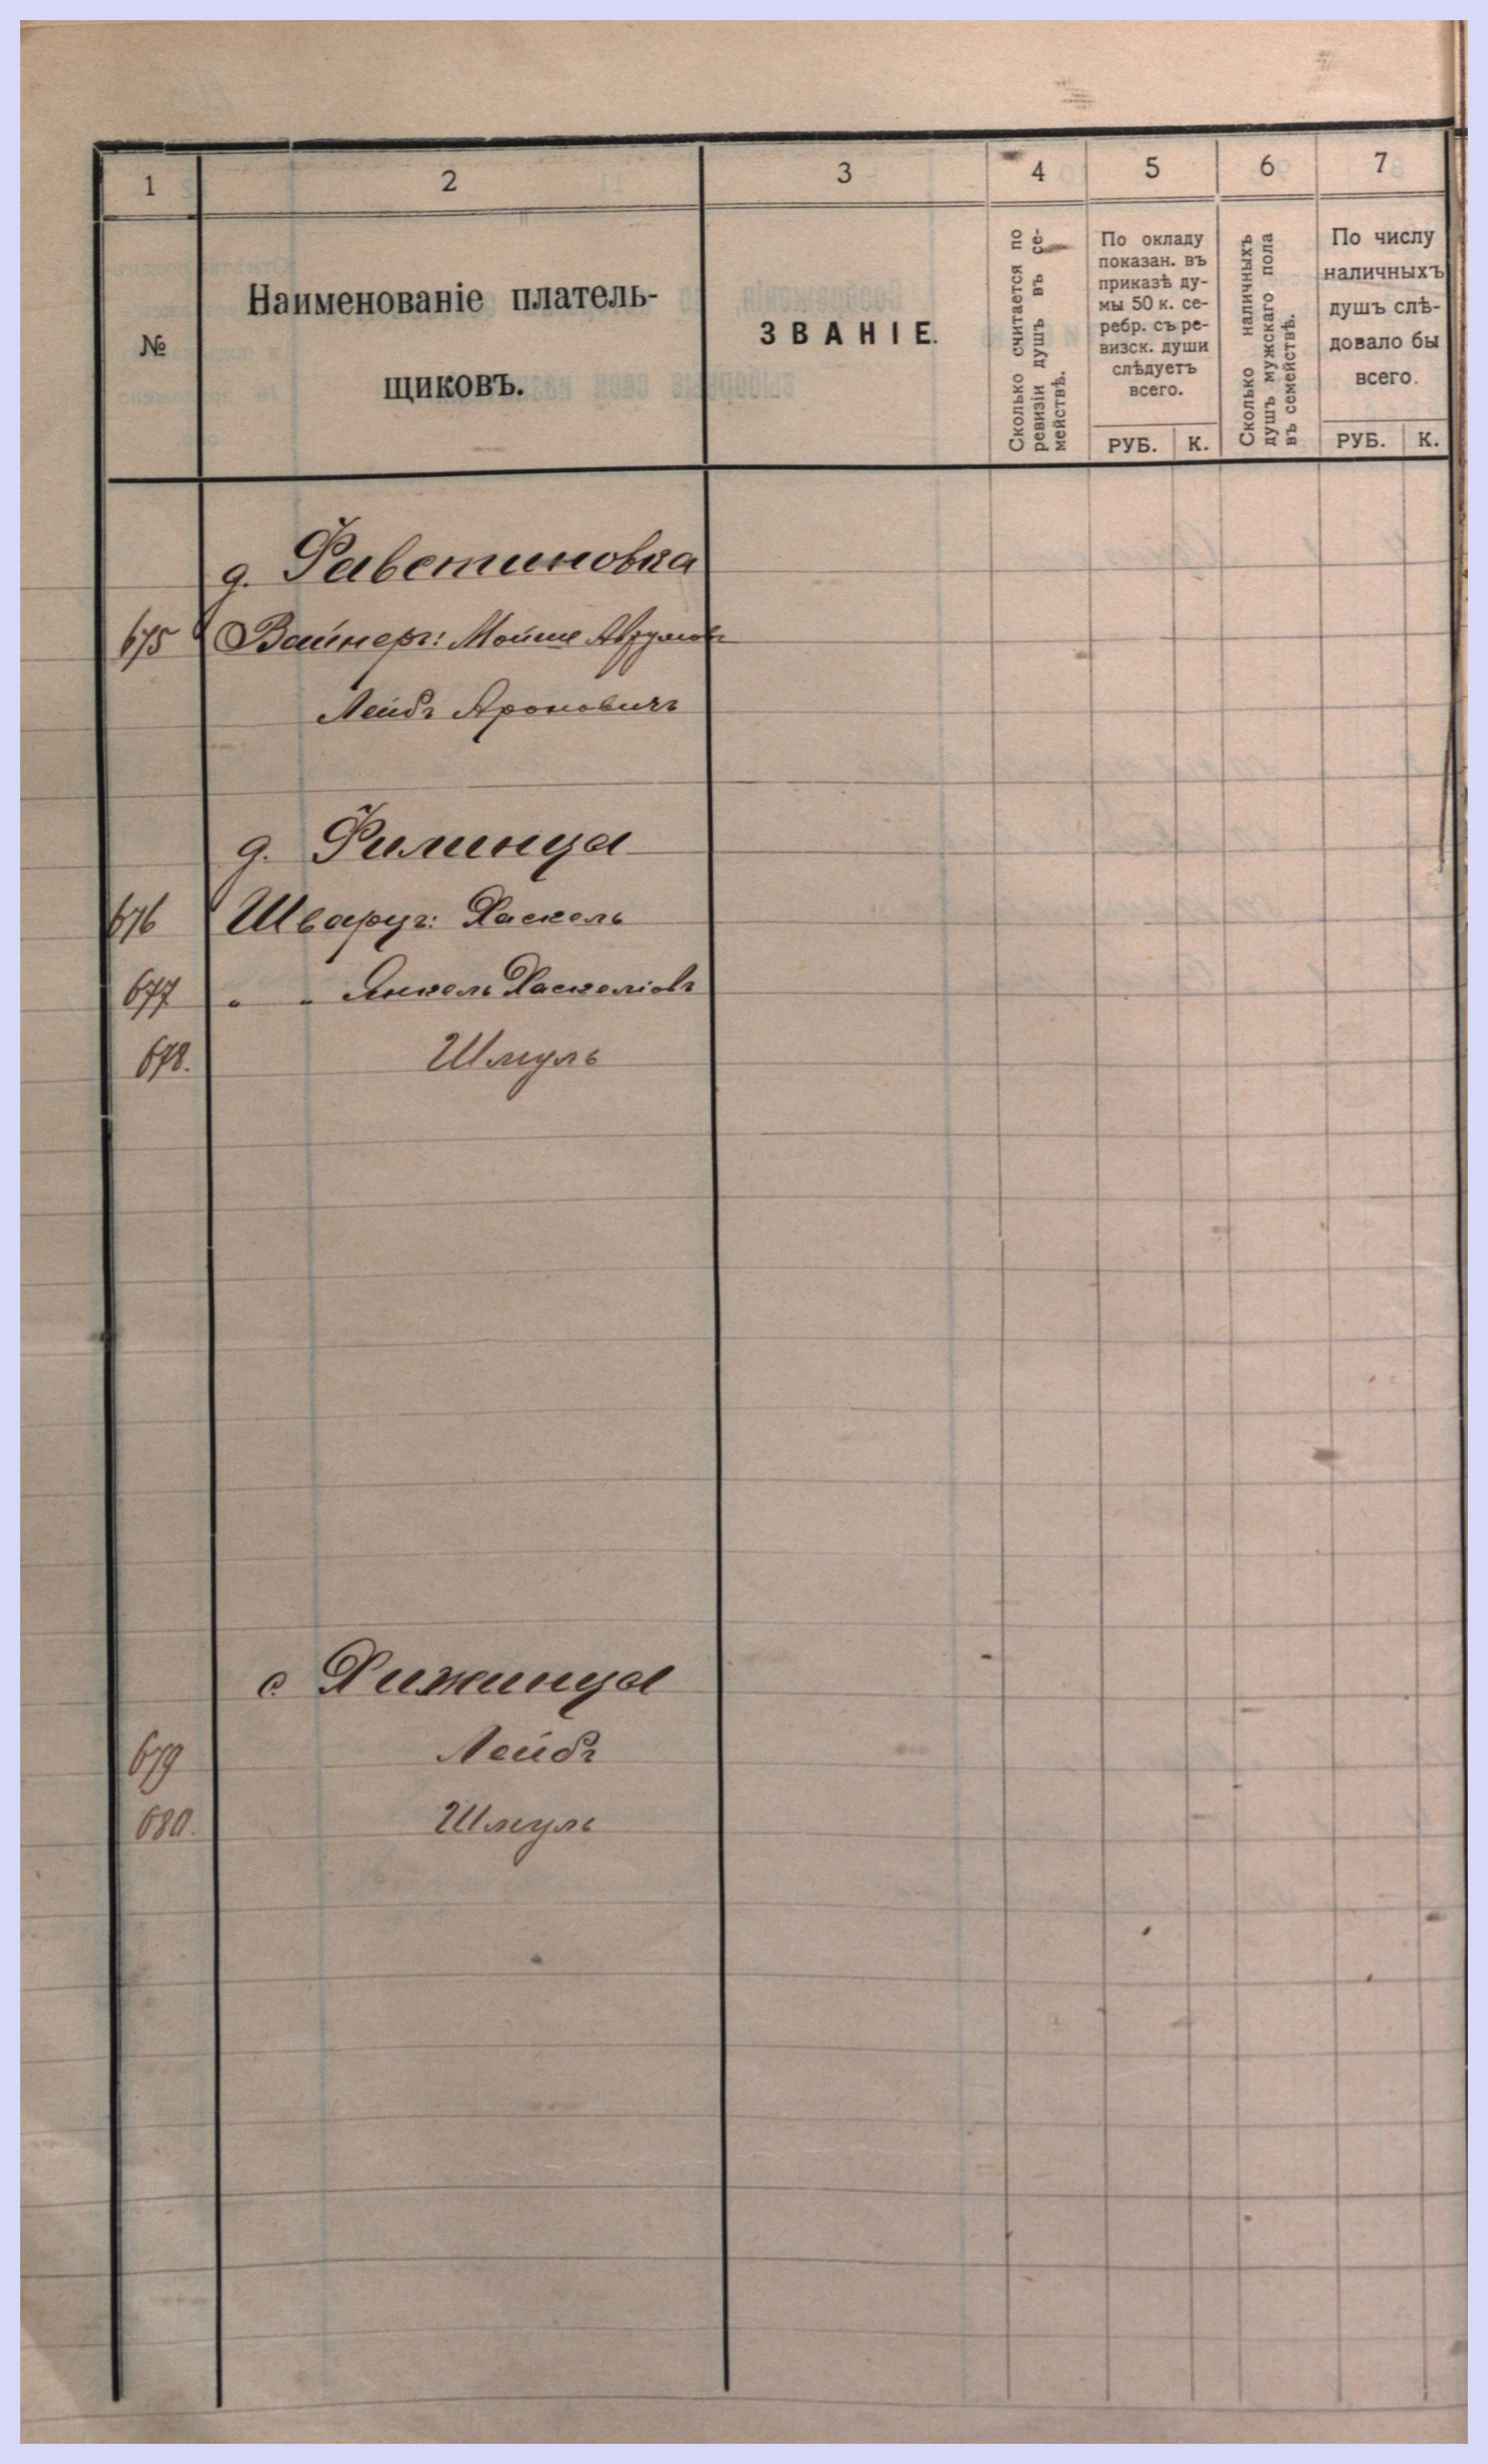 1 2 3 4 5 6 7
№
Наименованіе платель-
щиковъ.
ЗВАНІЕ.
Сколько считается по
ревизіи душъ въ се-
мействѣ.
По окладу
показан. въ
приказѣ ду-
мы 50 к. се-
ребр. съ ре-
визск. души
слѣдуетъ
всего.
РУБ. К.
Сколько наличныхъ
душъ мужскаго пола
въ семействѣ.
По числу
наличныхъ
душъ слѣ-
довало бы
всего.
РУБ. К.
д. Фавстиновка
675 Вайнеръ: Мойше Аврумовъ
Лейбъ Ароновичъ
д. Филинцы
676 Шварцъ: Хаскель
677 " " Янкель Хаскеліовъ
678. Шмуль
с. Хижинцы
679 Лейбъ
680. Шмуль